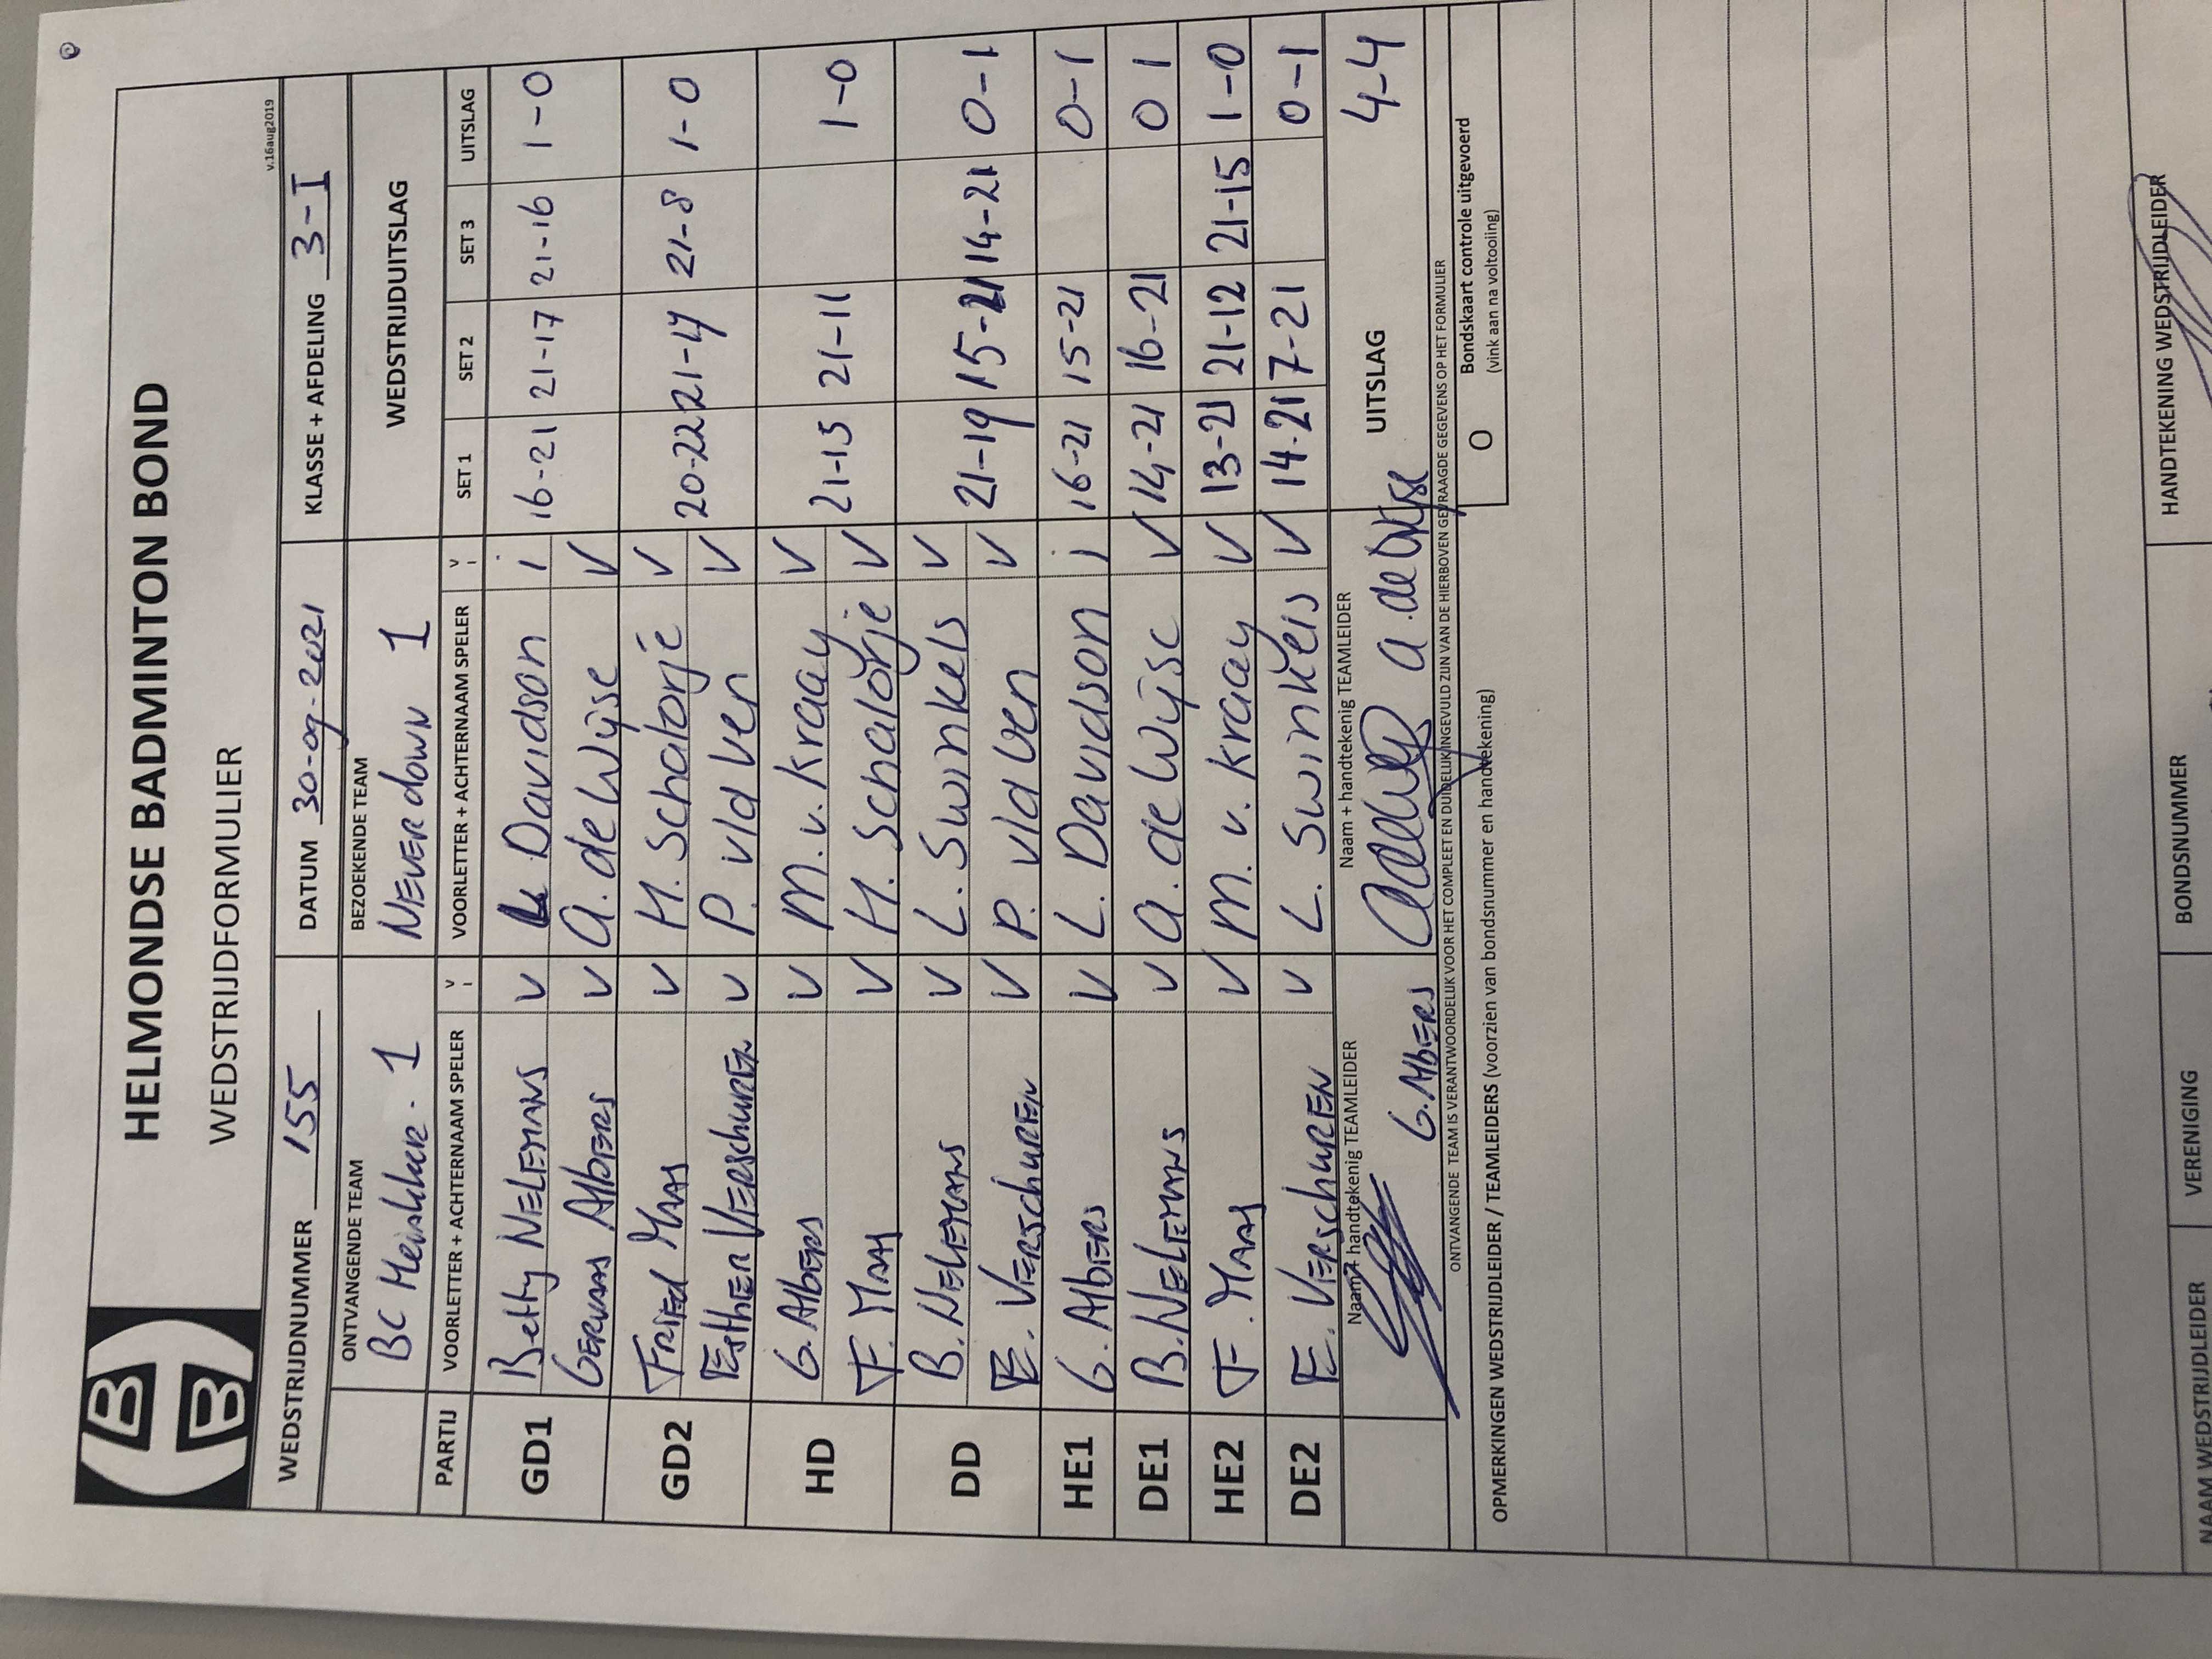 HELMONDSE BADMINTON BOND
WEDSTRIJDFORMULIER
v.16aug2019
WEDSTRIJDNUMMER 155 DATUM 30-09-2021 KLASSE + AFDELING 3-I
ONTVANGENDE TEAM BEZOEKENDE TEAM WEDSTRIJDUITSLAG
BC 1 NEVER down 1
PARTIJ VOORLETTER + ACHTERNAAM SPELER V i VOORLETTER + ACHTERNAAM SPELER V i SET 1 SET 2 SET 3 UITSLAG
GD1 Betty NELEMANS V L Davidson i 16-21 21-17 21-16 1-0
GERVAAS AlbERS V A. de Wijse V
GD2 FRIED MAAS V H. Schalorjé V 20-22 21-14 21-8 1-0
EstHER VERschuREN V P. v/d Ven V
HD G. AlbERS V M. v. Kraay V 21-15 21-11 1-0
F. MAAS V H. Schalorje V
DD B. NELEMANS V L. Swinkels V 21-19 15-21 14-21 0-1
E. VERSchuREN V P. v/d Ven V
HE1 G. AlbERS V L. Davidson i 16-21 15-21 0-1
DE1 B. NELEMANS V a. de Wijse V 14-21 16-21 0 1
HE2 F. MAAS V M. v. Kraay V 13-21 21-12 21-15 1-0
DE2 E. VERSchuREN V L. Swinkels V 14-21 17-21 0-1
Naam + handtekenig TEAMLEIDER Naam + handtekenig TEAMLEIDER UITSLAG 4-4
G. AlbERS a. de Wijse
ONTVANGENDE TEAM IS VERANTWOORDELIJK VOOR HET COMPLEET EN DUIDELIJK INGEVULD ZIJN VAN DE HIERBOVEN GEVRAAGDE GEGEVENS OP HET FORMULIER
OPMERKINGEN WEDSTRIJDLEIDER / TEAMLEIDERS (voorzien van bondsnummer en handtekening) O Bondskaart controle uitgevoerd
(vink aan na voltooiing)
NAAM WEDSTRIJDLEIDER VERENIGING BONDSNUMMER HANDTEKENING WEDSTRIJDLEIDER